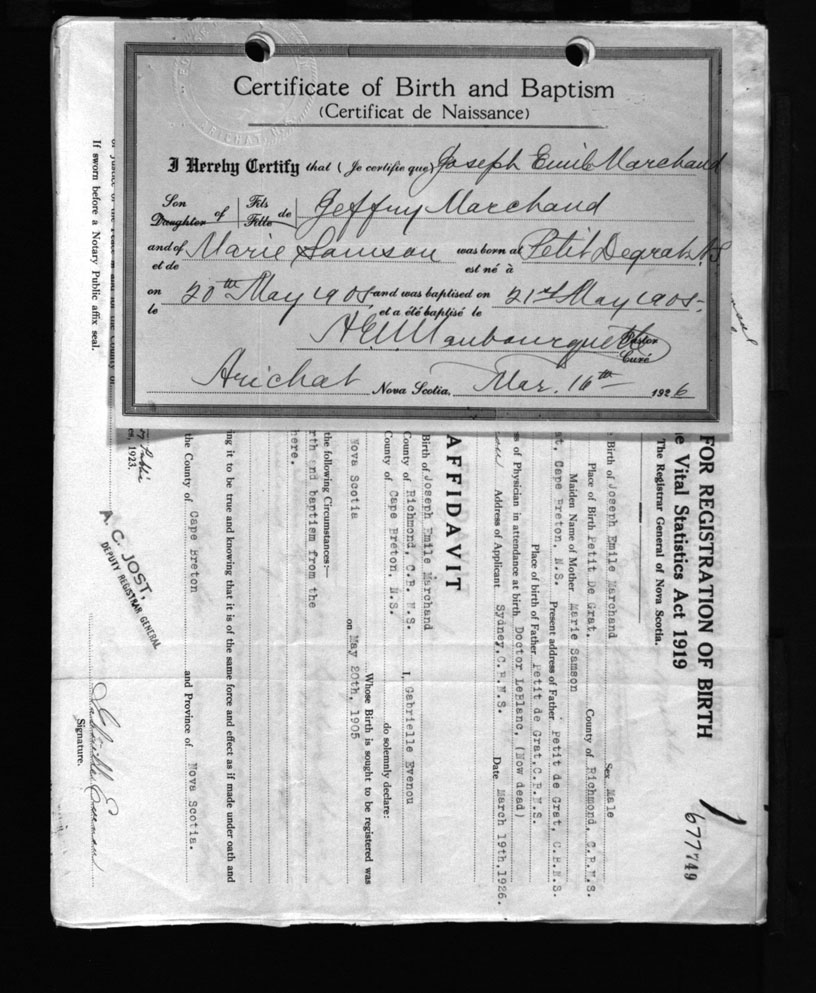 Certificate of Birth and Baptism
(Certificat de Naissance)
I Hereby Certify that (Je certifie que) Joseph Emile Marchand
Son Daughter of Fils Fille de Jeffry Marchand
and of Marie Samson was born at Petit Degrat N.S
et de est né à
on 20th May 1905 and was baptised on 21st May 1905
le et a été baptisé le
Pastor
Curé
Arichat Nova Scotia, Mar. 16th 1926
If sworn before a Notary Public affix seal.
677749
FOR REGISTRATION OF BIRTH
Vital Statistics Act 1919
The Registrar General of Nova Scotia.
Birth of Joseph Emile Marchand Sex Male
Place of Birth Petit De Grat. County of Richmond, C.B.N.S.
Maiden Name of Mother Marie Samson
Cape Breton, N.S. Present address of Father Petit de Grat, C.B.N.S.
Place of birth of Father Petit de Grat, C.B.N.S.
of Physician in attendance at birth Doctor LeBlanc, (Now dead)
Address of Applicant Sydney, C.B.N.S. Date March 19th, 1926.
AFFIDAVIT
Birth of Joseph Emile Marchand
County of Richmond, C.B. N.S. I, Gabrielle Evenou
County of Cape Breton, N.S. do solemnly declare:
Whose Birth is sought to be registered was
Nova Scotia on May 20th, 1905
the following Circumstances:—
and baptism from the
it to be true and knowing that it is of the same force and effect as if made under oath and
the County of Cape Breton and Province of Nova Scotia.
1923.
A. C. JOST,
DEPUTY REGISTRAR GENERAL
Gabrielle Evenou
Signature.